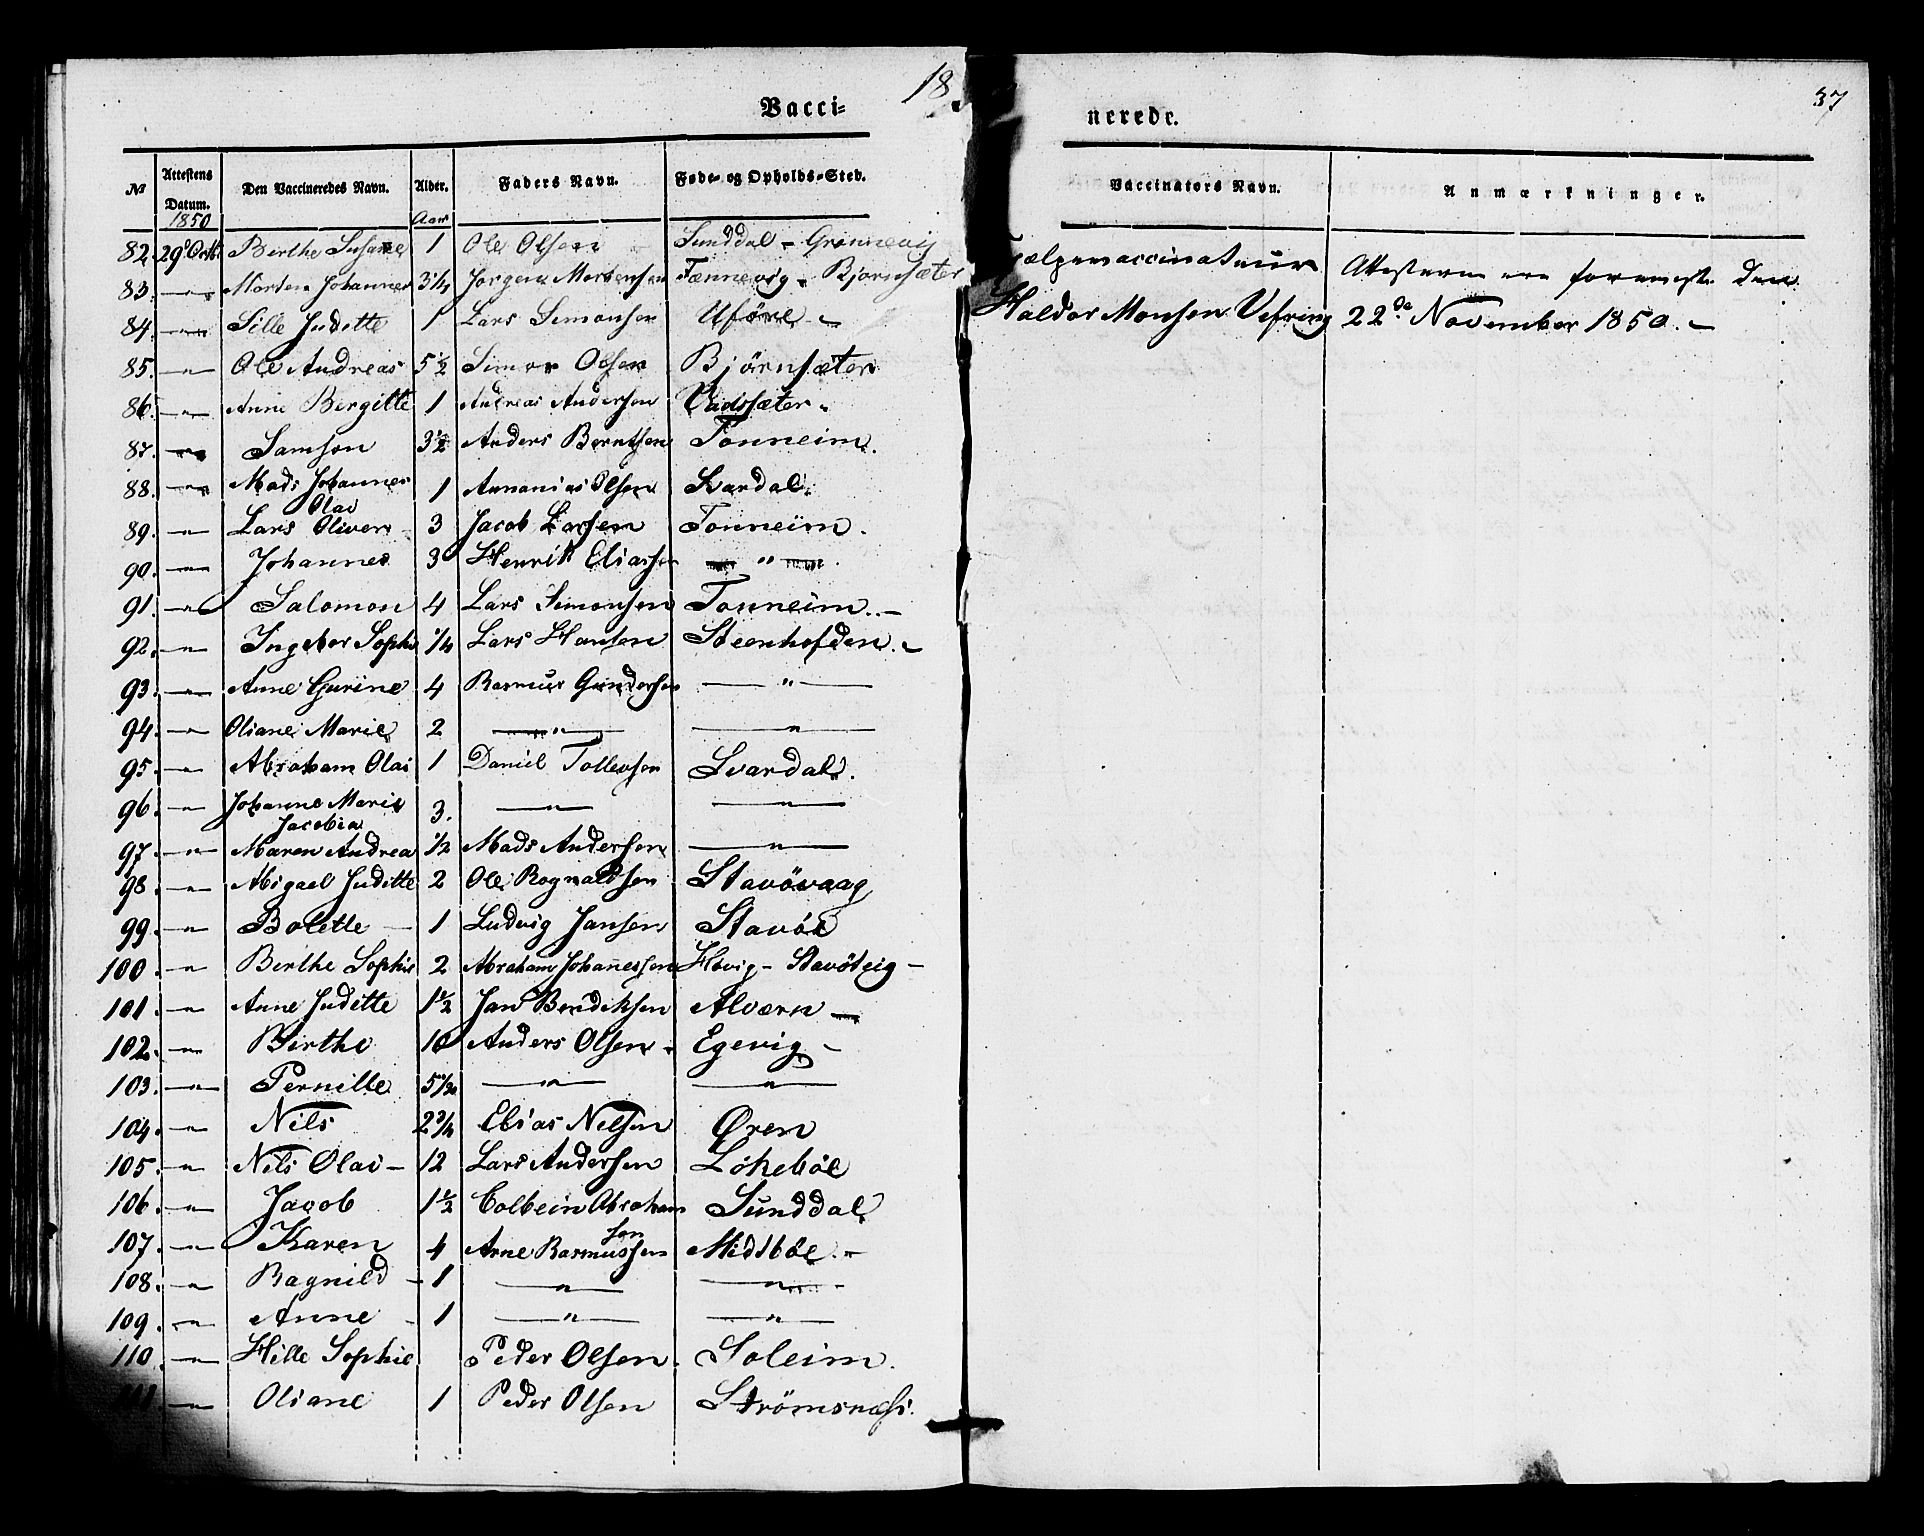 18
37
Vacci=
nerede.
No
Attestens Datum.
Den Vaccineredes Navn.
Alder.
Faders Navn.
Føde- og Opholds-Sted.
Vaccinators Navn.
Anmærkninger.
1850 Aar
82. 29de Octb. Birthe Susane 1 Ole Olsen Sunddal - Grønnevig
83. — " — Morten Johannes 3 1/4 Jørgen Mortensen Tønnevig - Bjørnsæter
84. — " — Sille Juditte 1 Lars Simonsen Uføre -
85. — " — Ole Andreas 5 1/2 Simon Olsen Bjørnsæter
86. — " — Anne Birgitte 1 Andreas Andersen Vadsæter
87. — " — Samson 3 1/2 Anders Berntsen Tonneim.
88. — " — Mads Johannes Olai 1 Annanias Olsen Svardal.
89. — " — Lars Oliver 3 Jacob Larsen Tonneim.
90. — " — Johannes 3 Henrik Eliassen — " —
91. — " — Salomon 4 Lars Simonsen Tonneim. -
92. — " — Ingebor Sophi 1/4 Lars Hansen Steenhofden. -
93. — " — Anne Gurine 4 Rasmus Gundersen — " —
94. — " — Oliane Marie 2 — " — — " —
95. — " — Abraham Olai 1 Daniel Tollevsen Svardal.
96. — " — Johanne Marie Jacobia 3. — " — — " —
97. — " — Maren Andrea 1/2 Mads Andersen — " —
98. — " — Abigael Juditte 2 Ole Rognaldsen Stavövaag
99. — " — Bolette 1 Ludvig Jansen Stavöe
100. — " — Birthe Sophie 2 Abraham Johannessen Hovig - Stavöteig -
101. — " — Anne Juditte 1 1/2 Jan Bendiksen Alværn
102. — " — Birthe 10 Anders Olsen Egevig -
103. — " — Pernille — " — — " —
104. — " — Nils 2 3/4 Elias Nilsen Øren
105. — " — Nils Olai - 12 Lars Andersen Løkebøe
106. — " — Jacob 1 1/2 Colbein Abrahamsen Sunddal
107. — " — Karen 4 Arne Rasmussen Midtbøe. -
108. — " — Ragnild - 1 — " — — " —
109. — " — Anne - 1 — " — — " —
110. — " — Hille Sophie Peder Olsen Soleim.
111 — " — Oliane 1 Peder Olsen Strömsnæss.
Haldor Monsen Vefring
Attesterne ere forevist den
22de November 1850. -